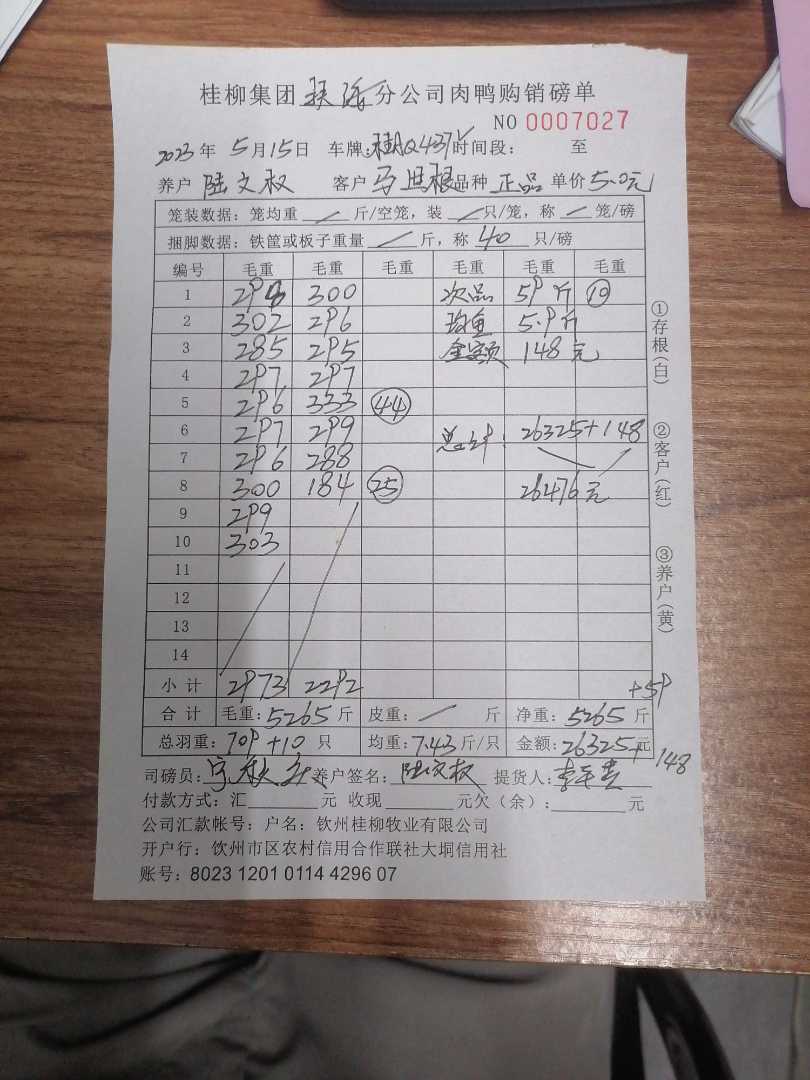 桂柳集团 扶绥 分公司肉鸭购销磅单
NO 0007027
2023 年 5 月 15 日 车牌: 时间段: 至
养户 陆文权 客户 品种 正品 单价 5.0元
笼装数据: 笼均重 / 斤/空笼, 装 / 只/笼, 称 / 笼/磅
捆脚数据: 铁筐或板子重量 / 斤, 称 40 只/磅
编号 毛重 毛重 毛重 毛重 毛重 毛重
1 298 300 次品 59斤 ⑩
2 302 296 均重 5.9斤
3 285 295 金额 148元
4 297 297
5 296 333 ㊹
6 297 299 总计: 26325+148
7 296 288
8 300 184 ㉕ 26476元
9 299
10 303
11
12
13
14
小计 2973 2292 +59
合计 毛重: 5265 斤 皮重: / 斤 净重: 5265 斤
总羽重: 709+10 只 均重: 7.43 斤/只 金额: 26325元
+148
司磅员: 养户签名: 陆文权 提货人:
付款方式: 汇 元 收现 元欠(余): 元
公司汇款帐号: 户名: 钦州桂柳牧业有限公司
开户行: 钦州市区农村信用合作联社大垌信用社
账号: 8023 1201 0114 4296 07
①存根(白)
②客户(红)
③养户(黄)